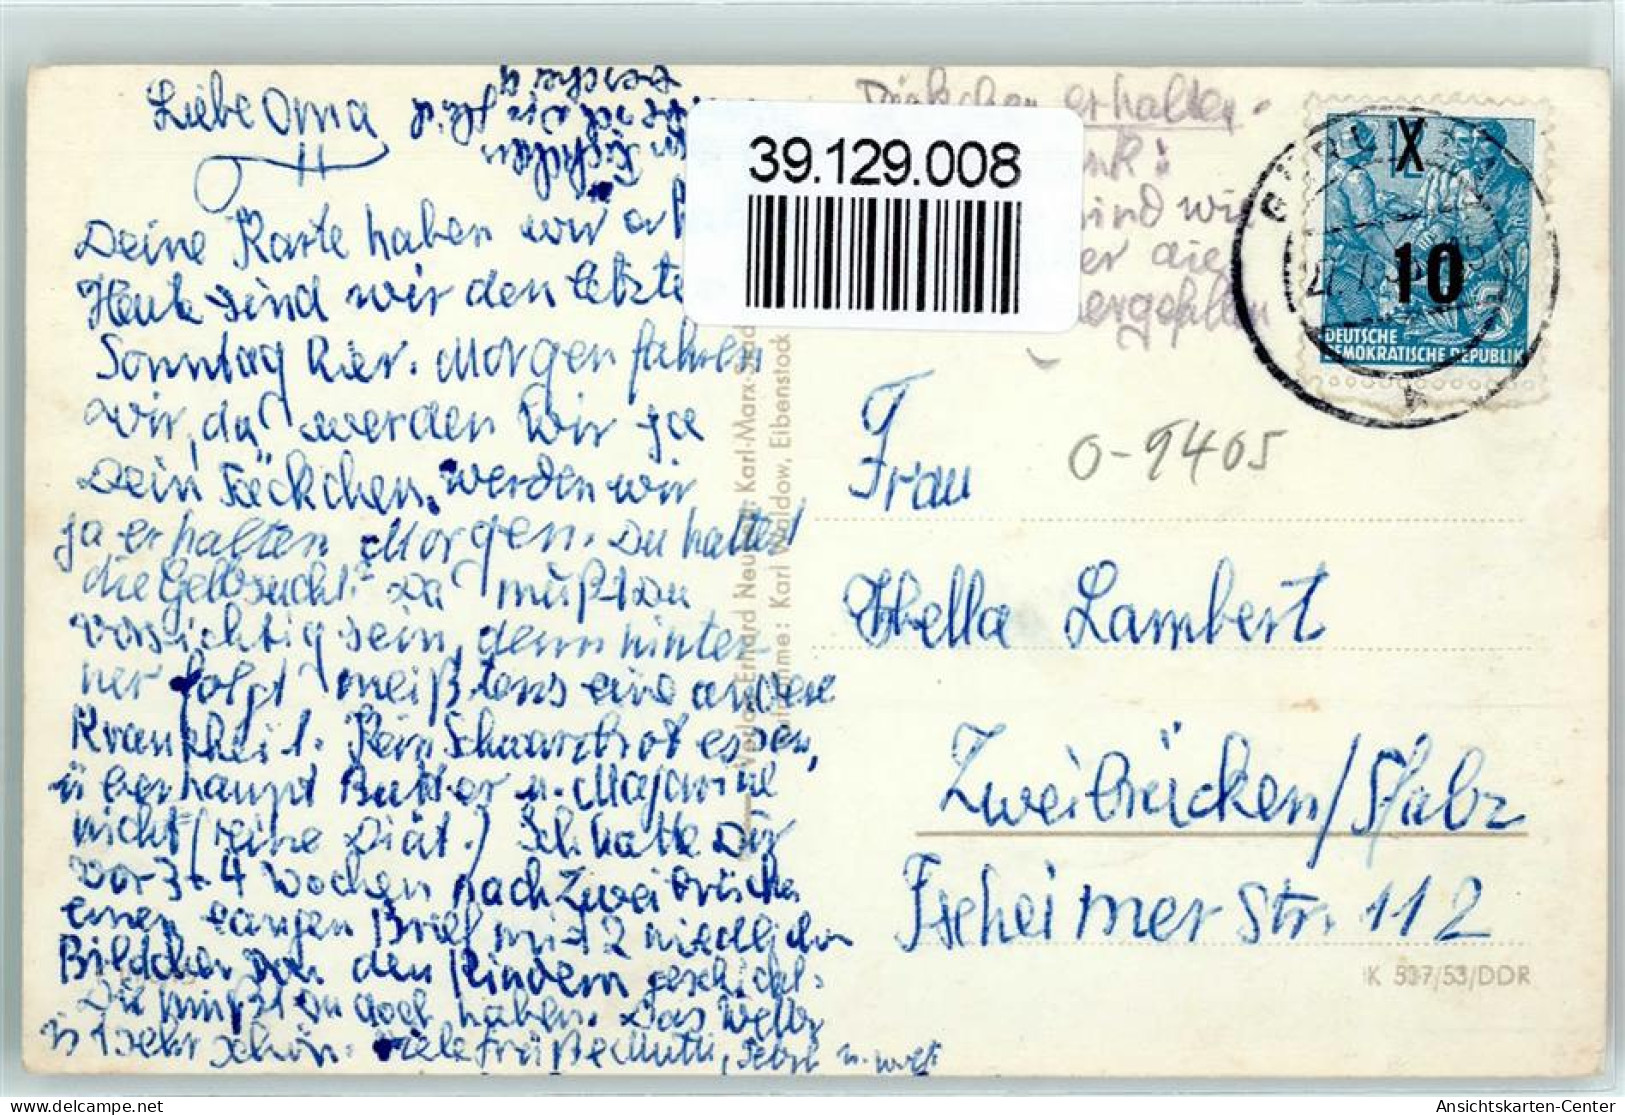 Liebe Oma
Deine Karte haben wir
Heute sind wir den letzten
Sonntag hier. Morgen fahren
wir, da werden wir ja
Dein Päckchen, werden wir
ja erhalten Morgen. Du hattest
die Gelbsucht. Da mußt Du
vorsichtig sein, denn hinter
her folgt meißtens eine andere
Krankheit. Kein Schwarzbrot essen,
überhaupt Butter u. Majonäse
nicht (reine Diät.) Ich hatte Dir
vor 3-4 Wochen nach Zweibrücken
einen langen Brief mit 2 niedlichen
Bildchen von den Kindern geschickt.
Die mußt Du doch haben. Das Wetter
ist sehr schön. Viele Grüße Mutti,
erhalten.
sind wir
die
39.129.008
X
10
DEUTSCHE
DEMOKRATISCHE REPUBLIK
0-9405
Frau
Hella Lambert
Zweibrücken/Pfalz
Str. 112
K 537/53/DDR
Karl-Marx-Stadt
Karl Waldow, Eibenstock
Ansichtskarten-Center
delcampe.net